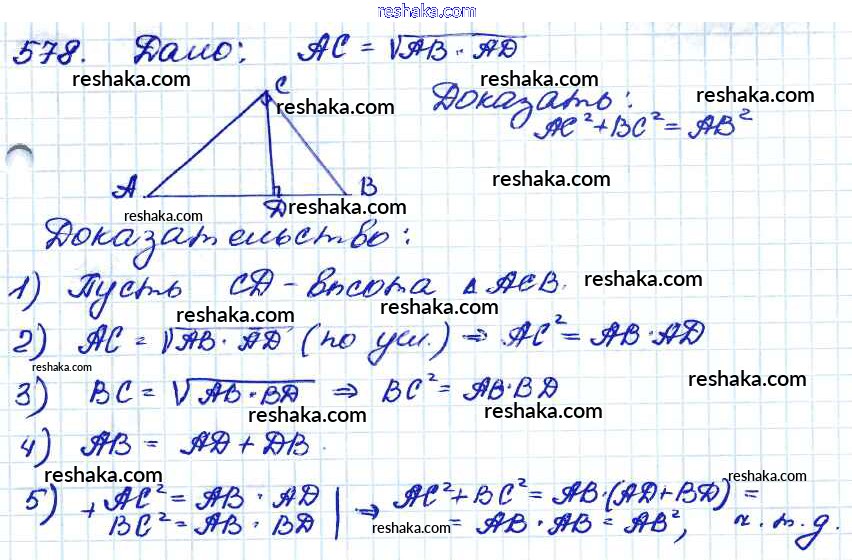 reshaka.com
578. Дано: AC = √AB · AD
reshaka.com reshaka.com
C
reshaka.com
Доказать: reshaka.com
AC² + BC² = AB²
A D B
reshaka.com reshaka.com reshaka.com
Доказательство:
1) Пусть CD - высота Δ ACB. reshaka.com
reshaka.com reshaka.com
2) AC = √AB · AD (по усл.) ⇒ AC² = AB · AD
reshaka.com reshaka.com
3) BC = √AB · BD ⇒ BC² = AB · BD
reshaka.com reshaka.com
4) AB = AD + DB.
reshaka.com reshaka.com reshaka.com
5) + AC² = AB · AD | ⇒ AC² + BC² = AB · (AD + BD) =
BC² = AB · BD reshaka.com = AB · AB = AB², ч.т.д.
reshaka.com